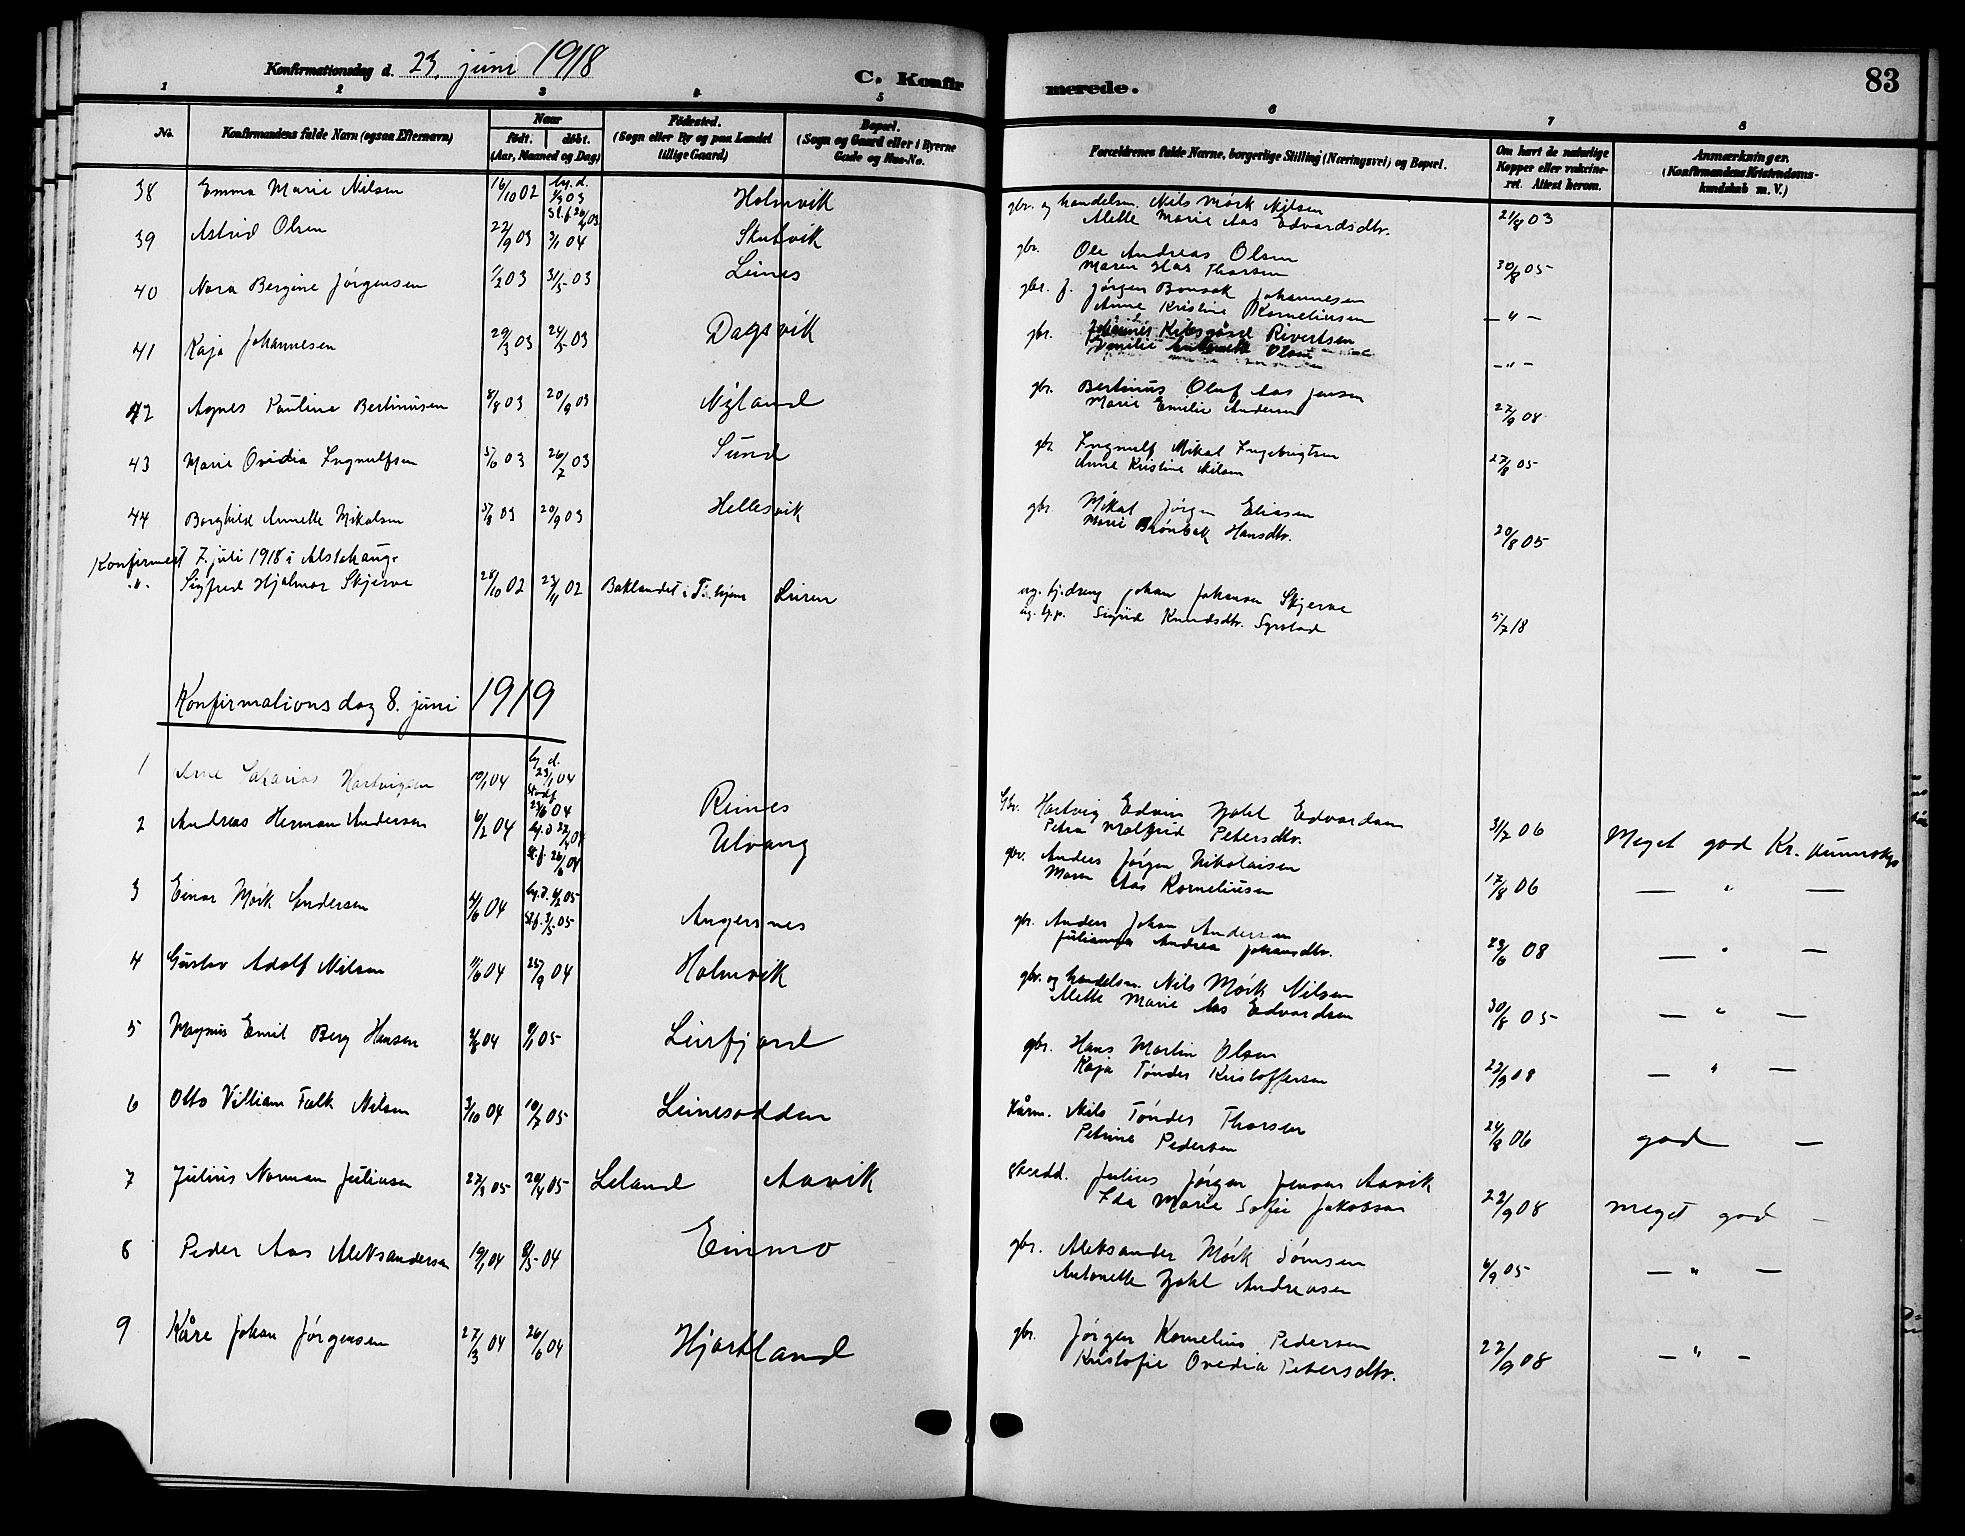 Konfirmationsdag d. 23. juni 1918
C. Konfirmerede.
83
1 2 3 4 5 6 7 8
No.
Konfirmandens fulde Navn (ogsaa Efternavn)
Naar
født. døbt.
(Aar, Maaned og Dag)
Fødested.
(Sogn eller By og paa Landet
tillige Gaard)
Bopæl.
(Sogn og Gaard eller i Byerne
Gade og Hus-No.
Forældrenes fulde Navne, borgerlige Stilling (Næringsvei) og Bopæl.
Om havt de naturlige
Kopper eller vakcine-
ret. Attest herom.
Anmærkninger.
(Konfirmandens Kristendoms-
kundskab m. V.)
38 Emma Marie Nilsen 16/10 02 hj. d. 1/3 03 St. f. 26/4 03 Holmvik gbr. og handelsm. Nils Mørk Nilsen 21/8 03
Alette Marie Aas Edvardsdtr.
39 Astrid Olsen 22/9 03 3/1 04 Skutvik gbr. Ole Andreas Olsen 30/8 05
Maren Aas Thorsen
40 Nora Bergine Jørgensen 1/2 03 31/5 03 Leines gbr. f. Jørgen Bonsak Johannesen - " -
Anne Kristine Korneliussen
41 Kaja Johannesen 29/3 03 24/5 03 Dagsvik gbr. Johannes Kibsgård Rivertsen - " -
Emilie Antonette Olsen
42 Agnes Pauline Bertinusen 8/8 03 20/9 03 Nyland gbr. Bertinus Oluf Aas Jensen 27/9 08
Marie Emilie Andersen
43 Marie Ovidia Ingnulfsen 5/6 03 26/7 03 Sund gbr. Ingnulf Mikal Ingebrigtsen 27/8 05
Anne Kristine Nilsen
44 Borghild Annette Mikalsen 5/8 03 20/9 03 Hellesvik gbr. Mikal Jørgen Eliasen 20/8 05
Marie Brønbak Hansdtr.
Konfirmert 7. juli 1918 i Alstahaug.
" Sigfred Hjalmar Skjerve 28/10 02 23/11 02 Baklandet i T.hjem Leiren ug. tj.dreng Johan Johansen Skjerve 5/7 18
ug. tj.p. Sigrid Knudsdtr. Syrstad
Konfirmationsdag 8. juni 1919
1 Arne Sakarias Hartvigsen 10/1 04 hj. d. 23/1 04 Stadf. 23/6 04 Reines Gbr. Hartvig Edvin Zahl Edvardsen 31/7 06 Meget god Kr. kunnskap
Petra Malfrid Petersdtr.
2 Andreas Herman Andersen 6/2 04 hj. d 22/2 04 St. f. 26/6 04 Ulvang gbr. Anders Jørgen Nikolaisen 17/8 06 — " —
Maren Aas Korneliusen
3 Einar Mørk Andersen 4/6 04 hj. d. 4/2 05 St. f. 3/5 05 Angersnes gbr. Anders Johan Andersen 23/6 08 — " —
Julianna Andrea Johansdtr.
4 Gustav Adolf Nilsen 11/6 04 25/9 04 Holmvik gbr. og handelsm. Nils Mørk Nilsen 30/8 05 — " —
Alette Marie Aas Edvardsen
5 Magnus Emil Berg Hansen 3/8 04 8/1 05 Leirfjord gbr. Hans Martin Olsen 22/9 08 — " —
Kaja Tønder Kristoffersen
6 Otto Villiam Falk Nilsen 3/10 04 10/7 05 Leinesodden Kårm. Nils Tønder Thorsen 24/8 06 god —
Petrine Pedersen
7 Julius Norman Juliusen 27/3 05 20/4 05 Leland Aavik skredd. Julius Jørgen Jensen Aavik 22/9 08 meget god —
Ida Marie Sofie Jakobsen
8 Peder Aas Aleksandersen 19/1 04 8/5 04 Einmo gbr. Aleksander Mørk Sørnsen 6/9 05 — " —
Antonette Zahl Andreasen
9 Kåre Johan Jørgensen 27/3 04 26/6 04 Hjartland gbr. Jørgen Kornelius Pedersen 22/9 08 — " —
Kristofie Ovedia Petersdtr.